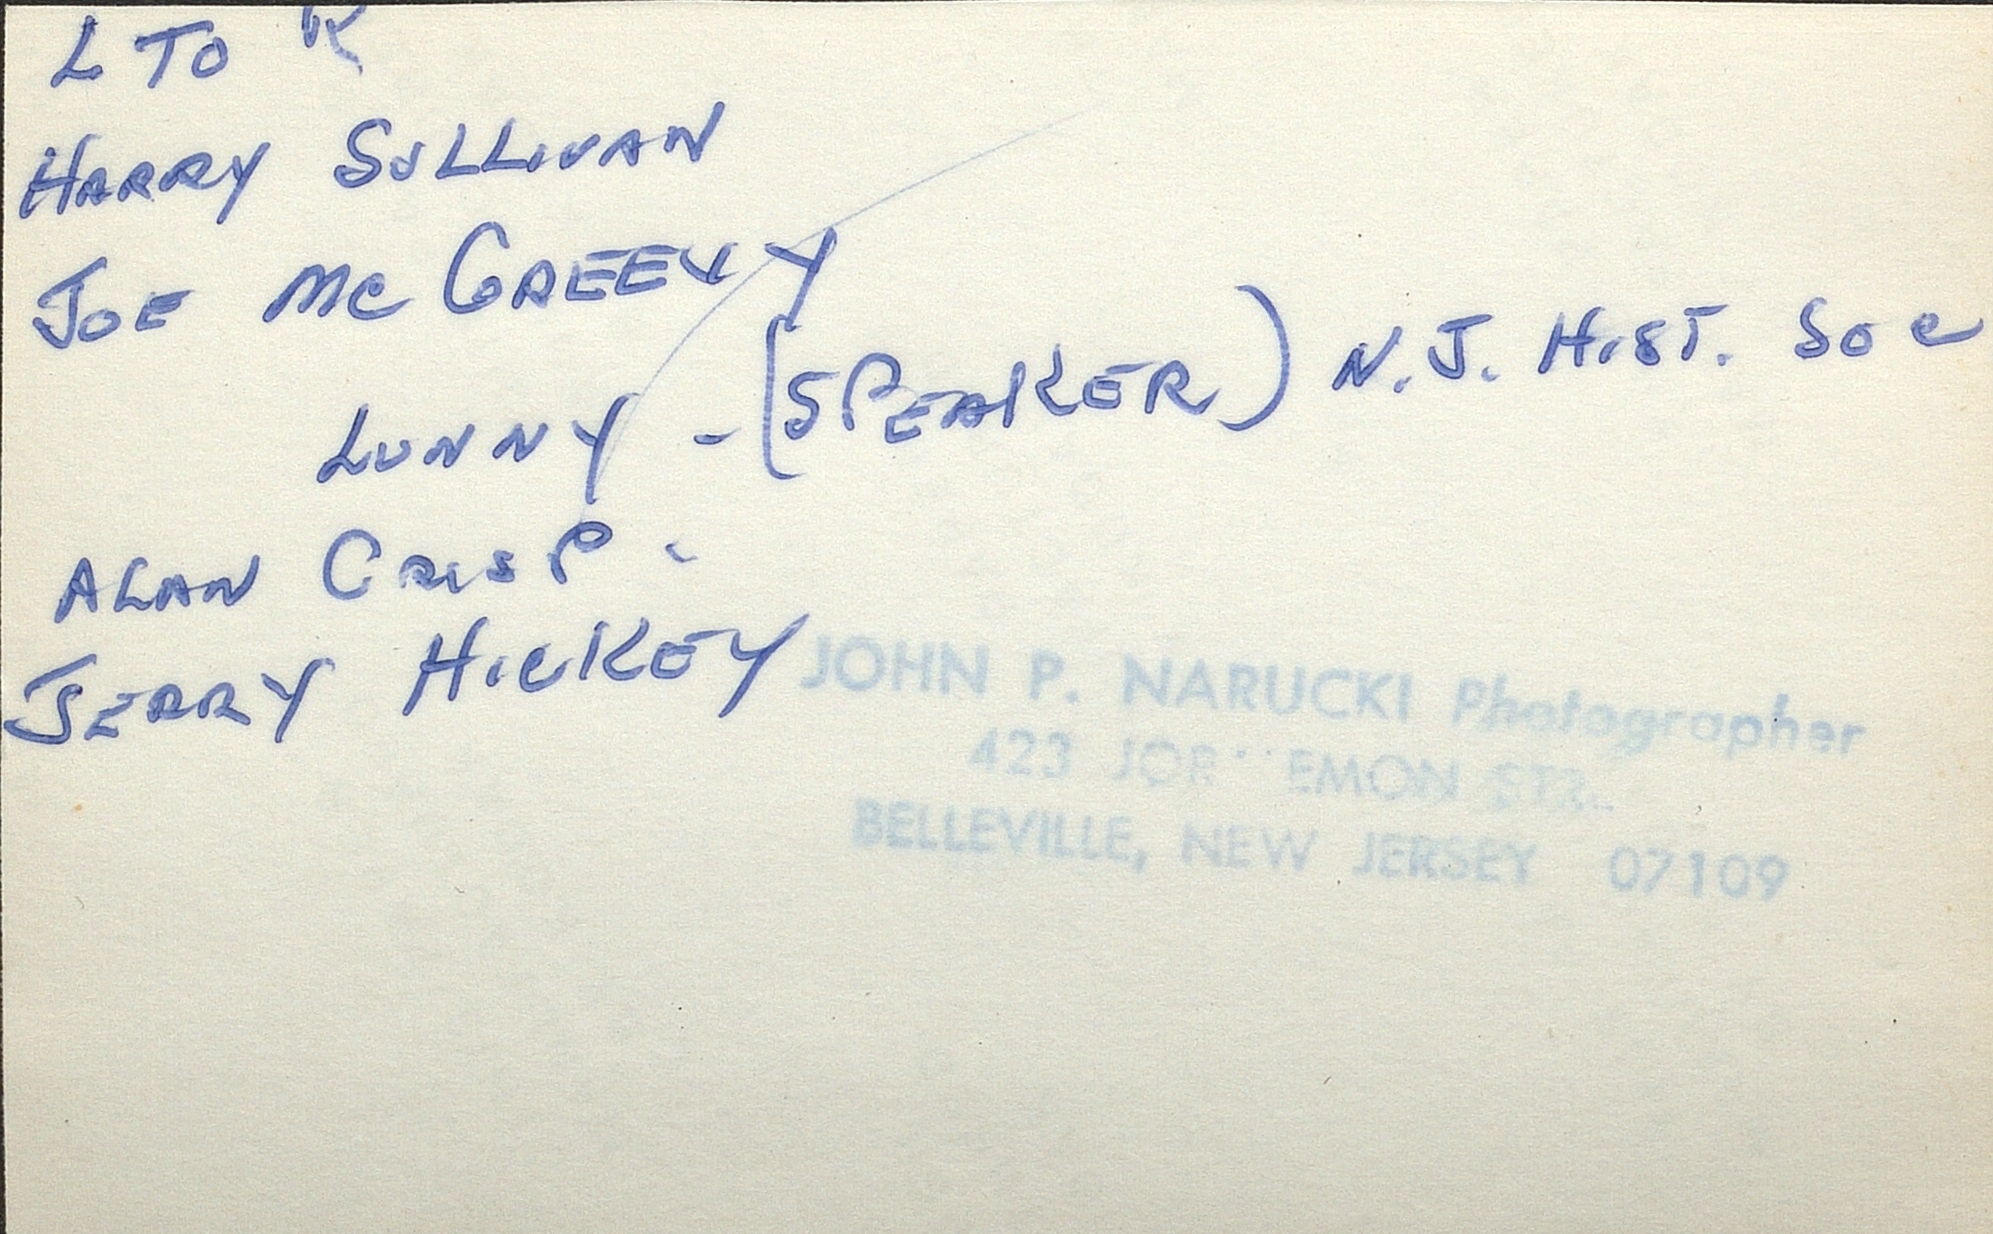 L TO R
HARRY SULLIVAN
JOE McGREEVY
LUNNY - (SPEAKER) N.J. HIST. Soc
ALAN CRISP.
JERRY HICKEY
JOHN P. NARUCKI Photographer
423
BELLEVILLE, NEW JERSEY 07109